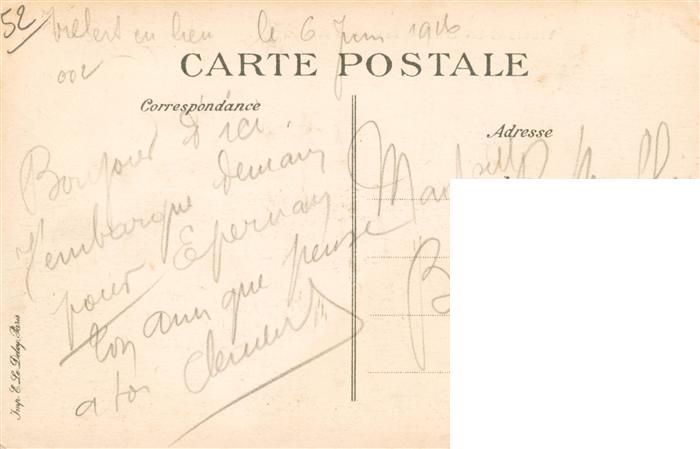 52
en lieu le 6 Juin 1916
CARTE POSTALE
Correspondance
Bonjour d'ici
J'embarque demain
pour Epernay
ton ami que pense
a toi
Adresse
Imp. E. Le Deley, Paris